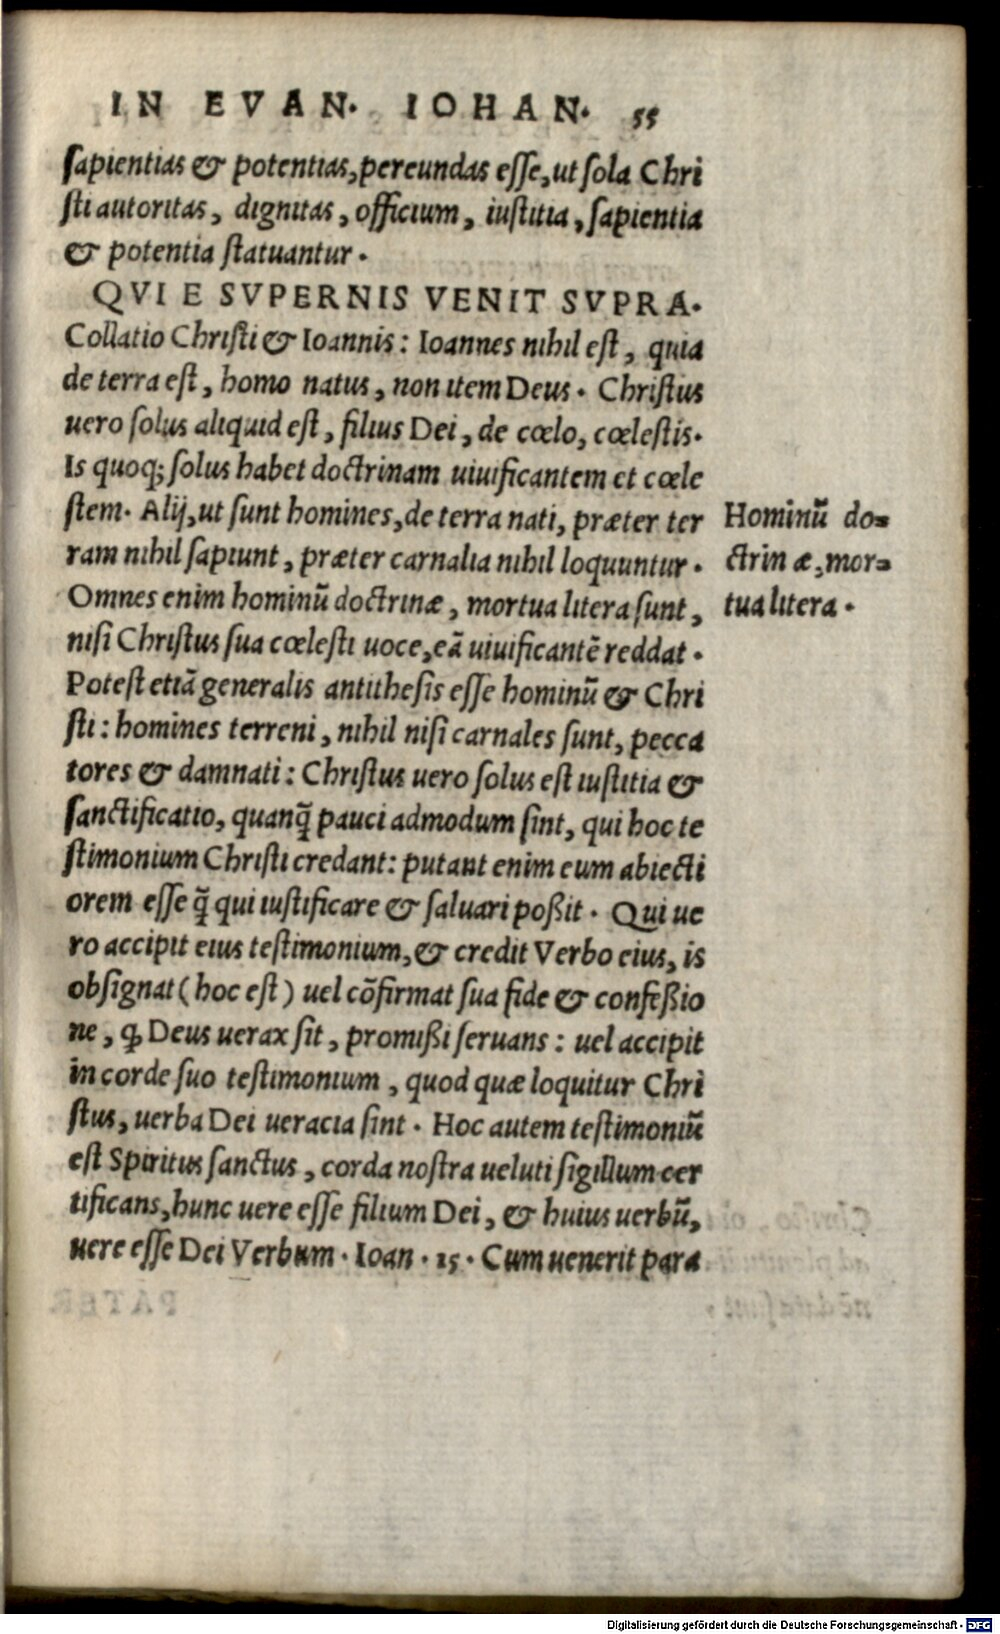 IN EVAN. IOHAN. 55
sapientias & potentias, pereundas esse, ut sola Chri
sti autoritas, dignitas, officium, iustitia, sapientia
& potentia statuantur.
QVI E SVPERNIS VENIT SVPRA.
Collatio Christi & Ioannis: Ioannes nihil est, quia
de terra est, homo natus, non item Deus. Christus
uero solus aliquid est, filius Dei, de cœlo, cœlestis.
Is quoq; solus habet doctrinam uiuificantem et cœle
stem. Alij, ut sunt homines, de terra nati, præter ter
ram nihil sapiunt, præter carnalia nihil loquuntur.
Omnes enim hominũ doctrinæ, mortua litera sunt,
nisi Christus sua cœlesti uoce, eã uiuificantẽ reddat.
Potest etiã generalis antithesis esse hominũ & Chri
sti: homines terreni, nihil nisi carnales sunt, pecca
tores & damnati: Christus uero solus est iustitia &
sanctificatio, quanq̃ pauci admodum sint, qui hoc te
stimonium Christi credant: putant enim eum abiecti
orem esse q̃ qui iustificare & saluari poßit. Qui ue
ro accipit eius testimonium, & credit Verbo eius, is
obsignat (hoc est) uel cõfirmat sua fide & confeßio
ne, ꝙ Deus uerax sit, promißi seruans: uel accipit
in corde suo testimonium, quod quæ loquitur Chri
stus, uerba Dei ueracia sint. Hoc autem testimoniũ
est Spiritus sanctus, corda nostra ueluti sigillum cer
tificans, hunc uere esse filium Dei, & huius uerbũ,
uere esse Dei Verbum. Ioan. 15. Cum uenerit para
Hominũ do=
ctrinæ, mor=
tua litera.
Digitalisierung gefördert durch die Deutsche Forschungsgemeinschaft - DFG